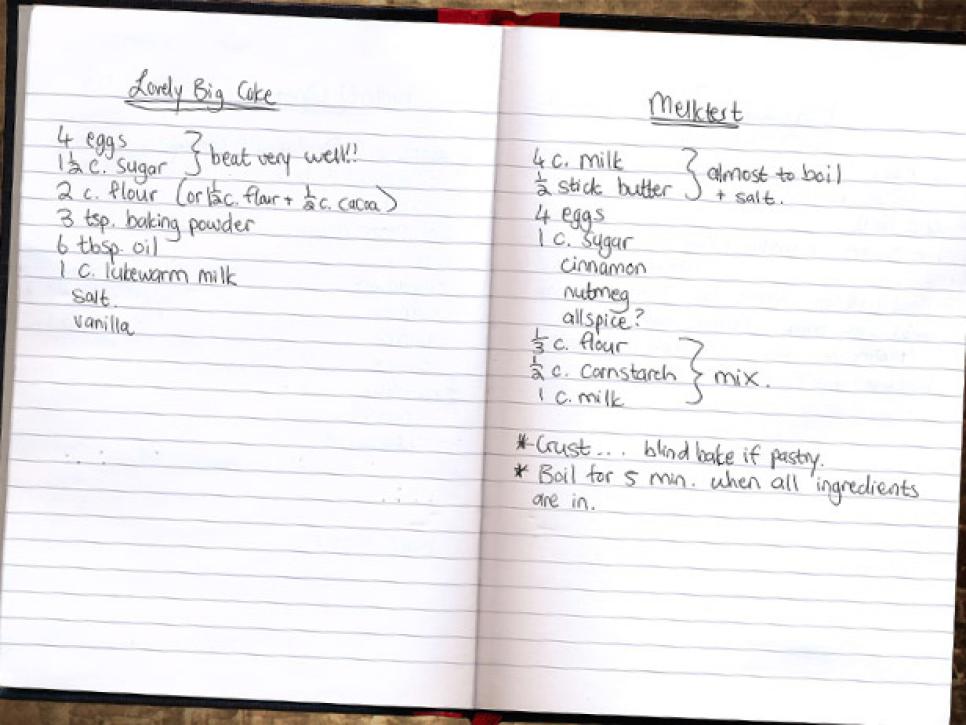 Lovely Big Cake
4 eggs
1 1/2 c. sugar } beat very well!!
2 c. flour (or 1 1/2 c. flour + 1/2 c. cacoa)
3 tsp. baking powder
6 tbsp. oil
1 c. lukewarm milk
salt.
vanilla
Melktert
4 c. milk
1/2 stick butter } almost to boil
+ salt.
4 eggs
1 c. sugar
cinnamon
nutmeg
allspice?
1/3 c. flour
1/2 c. cornstarch } mix.
1 c. milk
* Crust... blind bake if pastry.
* Boil for 5 min. when all ingredients
are in.